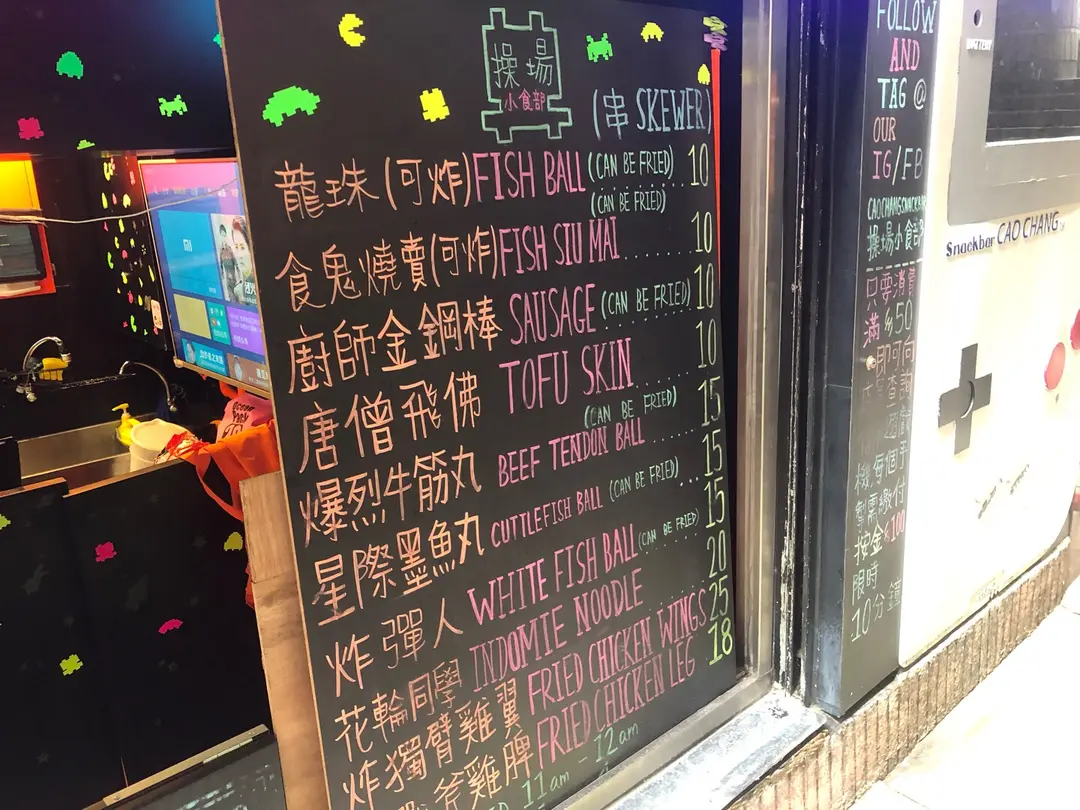 操場
小食部
(串 SKEWER)
龍珠 (可炸) FISH BALL (CAN BE FRIED) 10
(CAN BE FRIED)
食鬼燒賣 (可炸) FISH SIU MAI ...... 10
廚師金鋼棒 SAUSAGE (CAN BE FRIED) 10
唐僧飛佛 TOFU SKIN ..... 10
(CAN BE FRIED)
爆烈牛筋丸 BEEF TENDON BALL ..... 15
星際墨魚丸 CUTTLEFISH BALL (CAN BE FRIED) ... 15
炸彈人 WHITE FISH BALL (CAN BE FRIED) 15
花輪同學 INDOMIE NOODLE ..... 20
炸獨臂雞翼 FRIED CHICKEN WINGS 25
斧雞脾 FRIED CHICKEN LEG 18
11am - 12am
FOLLOW
AND
TAG @
OUR
IG/FB
CAOCHANGSNACKBAR
操場小食部
只要消費
滿 $50
即可向
機,每個手
掣需繳付
按金$100
限時
10分鐘
BATTERY
Snackbar CAO CHANG